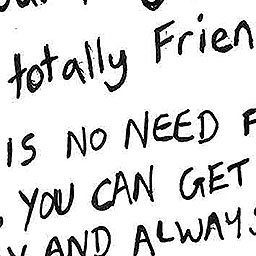 totally Frien
IS NO NEED F
YOU CAN GET
Y AND ALWAYS